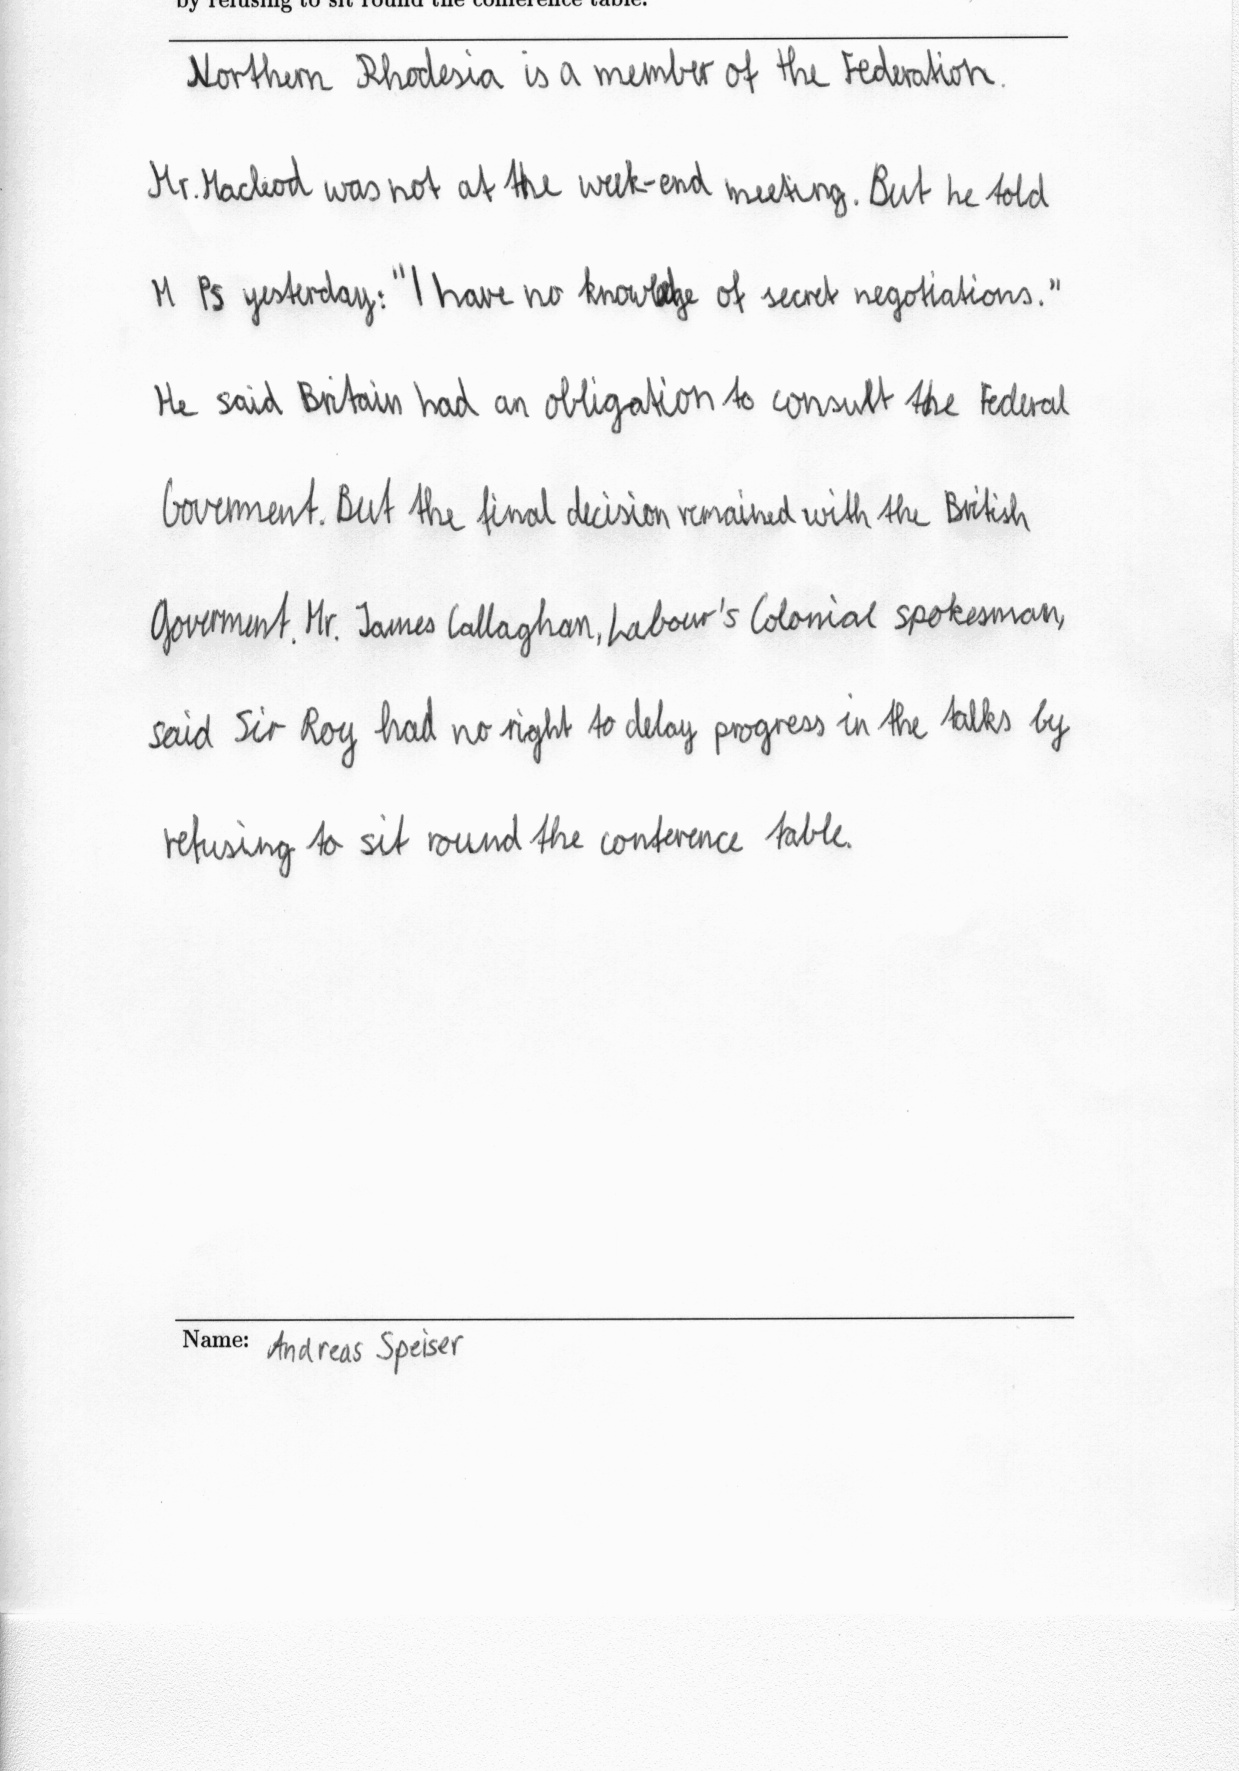 by refusing to sit round the conference table.
Northern Rhodesia is a member of the Federation.
Mr. Macleod was not at the week-end meeting. But he told
M Ps yesterday: "I have no knowledge of secret negotiations."
He said Britain had an obligation to consult the Federal
Goverment. But the final decision remained with the British
Goverment. Mr. James Callaghan, Labour's Colonial spokesman,
said Sir Roy had no right to delay progress in the talks by
refusing to sit round the conference table.
Name: Andreas Speiser